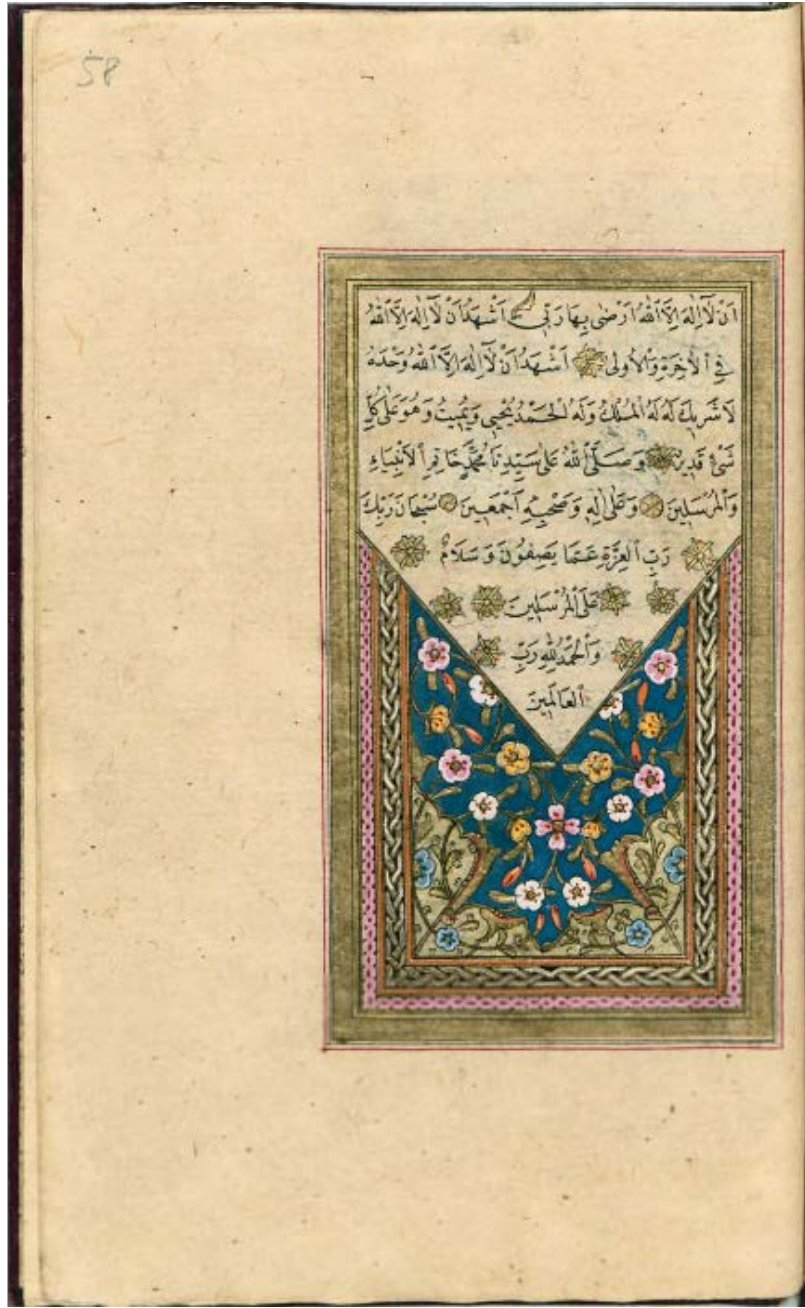 58
اَنْ لَٓا اِلٰهَ اِلَّا ٱللّٰهُ اَرْضٰى بِهَا رَبّٖى اَشْهَدُ اَنْ لَٓا اِلٰهَ اِلَّا ٱللّٰهُ
فِى ٱلْاٰخِرَةِ وَٱلْاُولٰى اَشْهَدُ اَنْ لَٓا اِلٰهَ اِلَّا ٱللّٰهُ وَحْدَهُ
لَا شَرِيكَ لَهُ لَهُ ٱلْمُلْكُ وَلَهُ ٱلْحَمْدُ يُحْيِى وَيُمِيتُ وَهُوَ عَلٰى كُلِّ
شَىْءٍ قَدِيرٌ وَصَلَّى ٱللّٰهُ عَلٰى سَيِّدِنَا مُحَمَّدٍ خَاتِمِ ٱلْاَنْبِيَاءِ
وَٱلْمُرْسَلِينَ وَعَلٰى اٰلِهِ وَصَحْبِهِ اَجْمَعِينَ سُبْحَانَ رَبِّكَ
رَبِّ ٱلْعِزَّةِ عَمَّا يَصِفُونَ وَسَلَامٌ
عَلَى ٱلْمُرْسَلِينَ
وَٱلْحَمْدُ لِلّٰهِ رَبِّ
ٱلْعَالَمِينَ